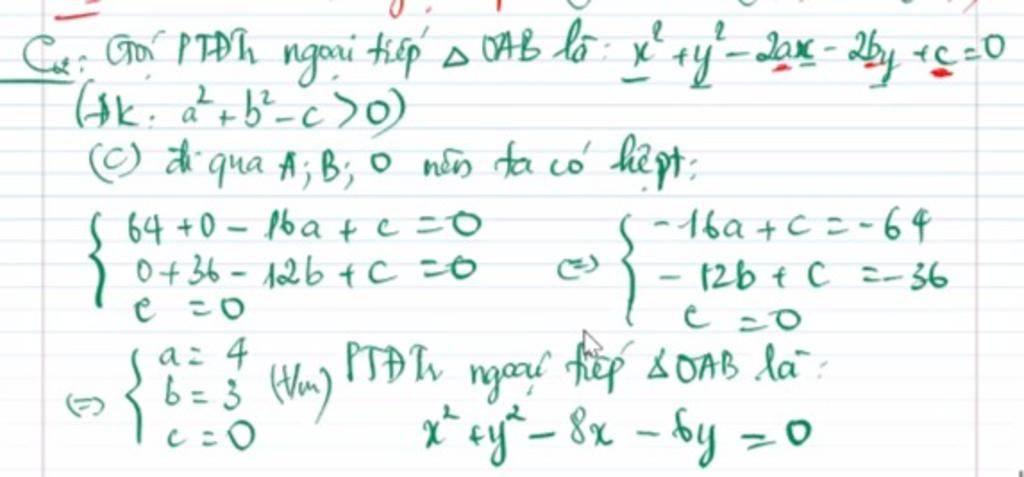 C₂: Gọi PTĐTr ngoại tiếp △ OAB là: x² + y² - 2ax - 2by + c = 0
(đk: a² + b² - c > 0)
(C) đi qua A; B; O nên ta có hệ pt:
{ 64 + 0 - 16a + c = 0 <=> { -16a + c = -64
0 + 36 - 12b + c = 0 - 12b + c = -36
c = 0 c = 0
<=> { a = 4 PTĐTr ngoại tiếp △OAB là:
b = 3 (t/m)
c = 0 x² + y² - 8x - 6y = 0